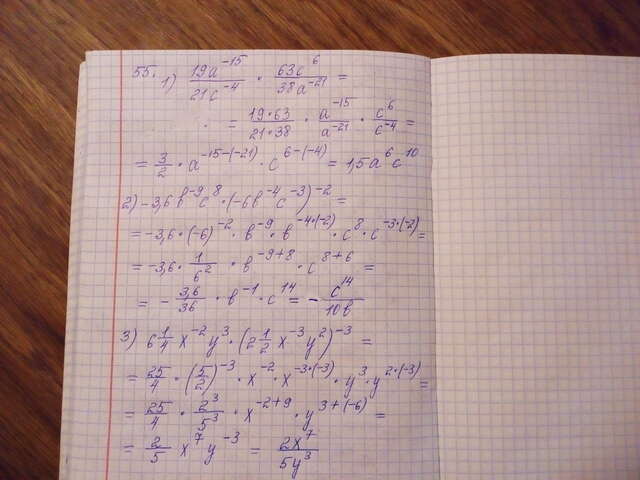 55. 1) 19a⁻¹⁵/21c⁻⁴ · 63c⁶/38a⁻²¹ =
= 19·63/21·38 · a⁻¹⁵/a⁻²¹ · c⁶/c⁻⁴ =
= 3/2 · a⁻¹⁵⁻⁽⁻²¹⁾ · c⁶⁻⁽⁻⁴⁾ = 1,5a⁶c¹⁰
2) -3,6 в⁻⁹c⁸ · (-6в⁻⁴c⁻³)⁻² =
= -3,6 · (-6)⁻² · в⁻⁹ · в^(-4·(-2)) · c⁸ · c^(-3·(-2)) =
= -3,6 · 1/6² · в⁻⁹⁺⁸ · c⁸⁺⁶ =
= - 3,6/36 · в⁻¹ · c¹⁴ = - c¹⁴/10в
3) 6 1/4 x⁻²y³ · (2 1/2 x⁻³y²)⁻³ =
= 25/4 · (5/2)⁻³ · x⁻² · x^(-3·(-3)) · y³ · y^(2·(-3)) =
= 25/4 · 2³/5³ · x⁻²⁺⁹ · y^(3+(-6)) =
= 2/5 x⁷y⁻³ = 2x⁷/5y³